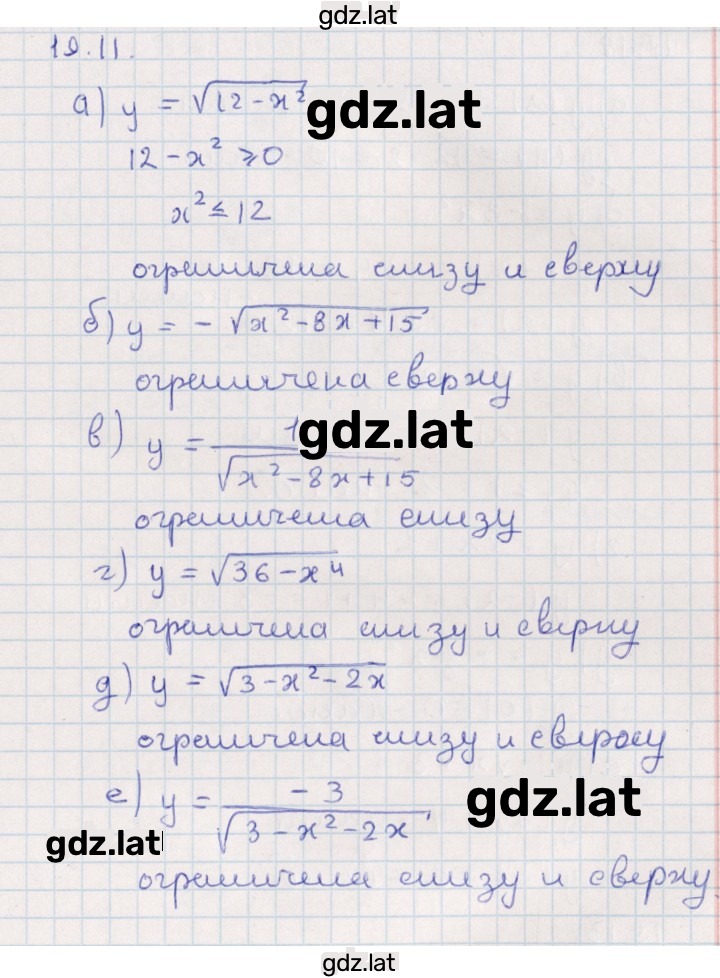 gdz.lat
19.11.
а) y = √12 - x²
gdz.lat
12 - x² ⩾ 0
x² ≤ 12
ограничена снизу и сверху
б) y = - √x² - 8x + 15
ограничена сверху
в) y = 1 / √x² - 8x + 15
gdz.lat
ограничена снизу
г) y = √36 - x⁴
ограничена снизу и сверху
д) y = √3 - x² - 2x
ограничена снизу и сверху
е) y = - 3 / √3 - x² - 2x
gdz.lat
gdz.lat
ограничена снизу и сверху.
gdz.lat